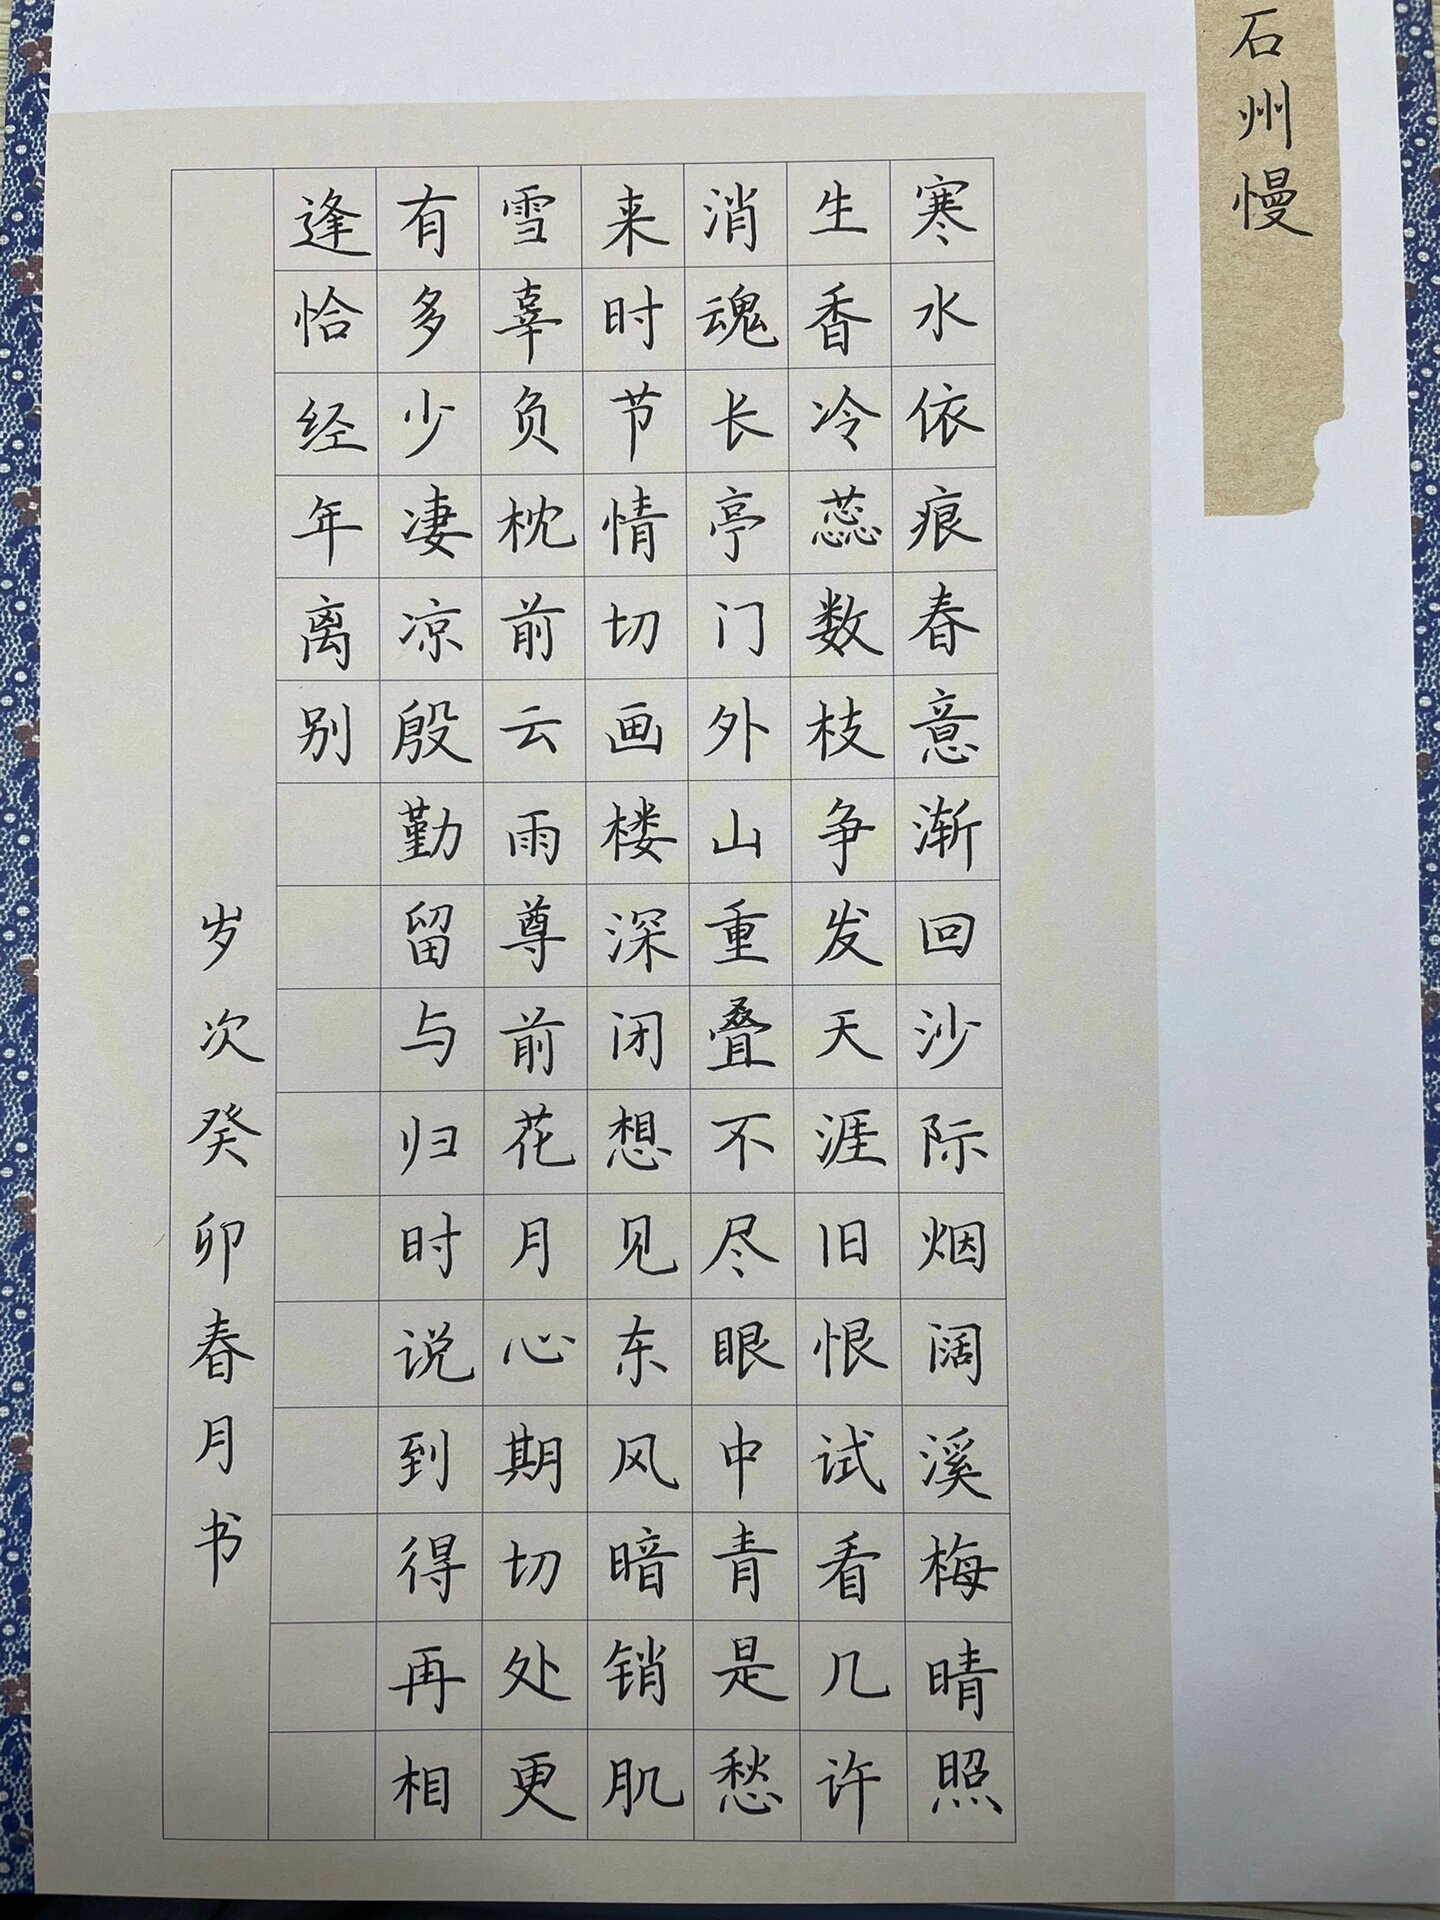 石州慢
寒水依痕春意渐回沙际烟阔溪梅晴照
生香冷蕊数枝争发天涯旧恨试看几许
消魂长亭门外山重叠不尽眼中青是愁
来时节情切画楼深闭想见东风暗销肌
雪辜负枕前云雨尊前花月心期切处更
有多少凄凉殷勤留与归时说到得再相
逢恰经年离别
岁次癸卯春月书